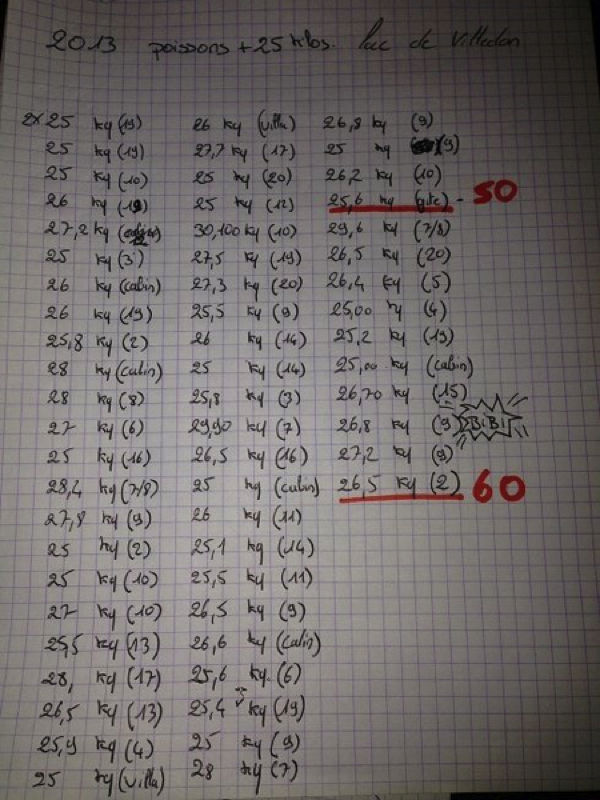 2013 poissons + 25 kilos. Lac de Villedon
2x 25 kg (19)
25 kg (19)
25 kg (10)
26 kg (19)
27,2 kg
25 kg (3)
26 kg (cabin)
26 kg (19)
25,8 kg (2)
28 kg (cabin)
28 kg (8)
27 kg (6)
25 kg (16)
28,4 kg (7/8)
27,8 kg (9)
25 kg (2)
25 kg (10)
27 kg (10)
25,5 kg (13)
28, kg (17)
26,5 kg (13)
25,9 kg (4)
25 kg (villa)
26 kg (villa)
27,7 kg (17)
25 kg (20)
25 kg (12)
30,100 kg (10)
27,5 kg (19)
27,3 kg (20)
25,5 kg (9)
26 kg (14)
25 kg (14)
25,8 kg (3)
29,90 kg (7)
26,5 kg (16)
25 kg (cabin)
26 kg (11)
25,1 kg (14)
25,5 kg (11)
26,5 kg (9)
26,6 kg (cabin)
25,6 kg. (6)
25,4 kg (19)
25 kg (9)
28 kg (7)
26,8 kg (9)
25 kg (9)
26,2 kg (10)
25,6 kg (gite) - 50
29,6 kg (7/8)
26,5 kg (20)
26,4 kg (5)
25,00 kg (4)
25,2 kg (19)
25,00 kg (cabin)
26,70 kg (15)
26,8 kg (9) BiBi
27,2 kg (9)
26,5 kg (2) 60